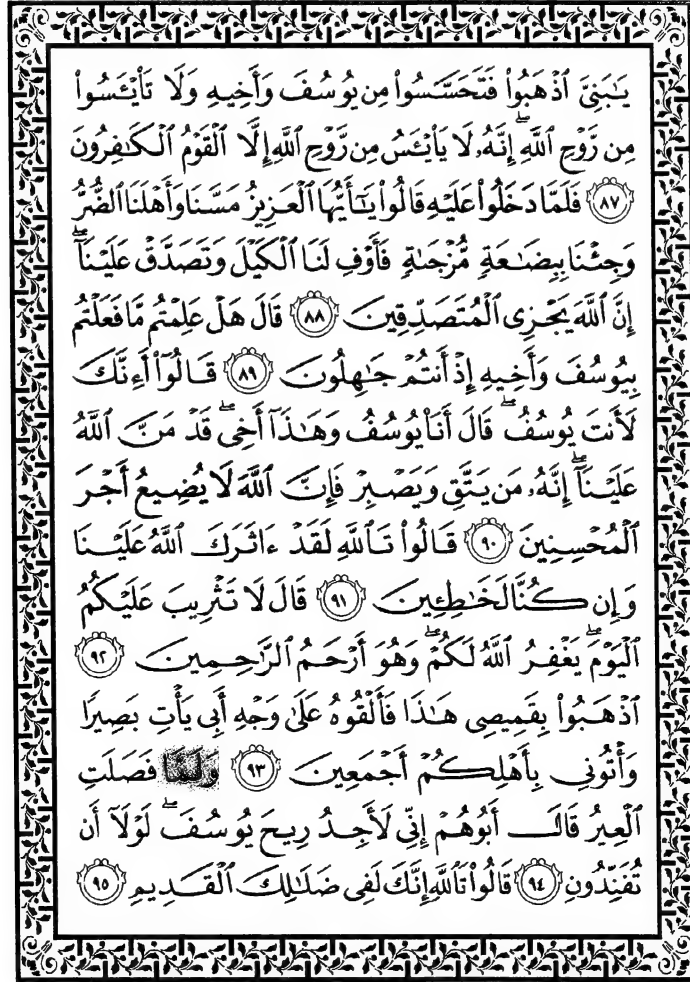 يَٰبَنِيَّ ٱذْهَبُوا۟ فَتَحَسَّسُوا۟ مِن يُوسُفَ وَأَخِيهِ وَلَا تَا۟يْـَٔسُوا۟
مِن رَّوْحِ ٱللَّهِ ۖ إِنَّهُۥ لَا يَا۟يْـَٔسُ مِن رَّوْحِ ٱللَّهِ إِلَّا ٱلْقَوْمُ ٱلْكَٰفِرُونَ
٨٧ فَلَمَّا دَخَلُوا۟ عَلَيْهِ قَالُوا۟ يَٰٓأَيُّهَا ٱلْعَزِيزُ مَسَّنَا وَأَهْلَنَا ٱلضُّرُّ
وَجِئْنَا بِبِضَٰعَةٍ مُّزْجَىٰةٍ فَأَوْفِ لَنَا ٱلْكَيْلَ وَتَصَدَّقْ عَلَيْنَآ ۖ
إِنَّ ٱللَّهَ يَجْزِى ٱلْمُتَصَدِّقِينَ ٨٨ قَالَ هَلْ عَلِمْتُم مَّا فَعَلْتُم
بِيُوسُفَ وَأَخِيهِ إِذْ أَنتُمْ جَٰهِلُونَ ٨٩ قَالُوٓا۟ أَءِنَّكَ
لَأَنتَ يُوسُفُ ۖ قَالَ أَنَا۠ يُوسُفُ وَهَٰذَآ أَخِى ۖ قَدْ مَنَّ ٱللَّهُ
عَلَيْنَآ ۖ إِنَّهُۥ مَن يَتَّقِ وَيَصْبِرْ فَإِنَّ ٱللَّهَ لَا يُضِيعُ أَجْرَ
ٱلْمُحْسِنِينَ ٩٠ قَالُوا۟ تَٱللَّهِ لَقَدْ ءَاثَرَكَ ٱللَّهُ عَلَيْنَا
وَإِن كُنَّا لَخَٰطِـِٔينَ ٩١ قَالَ لَا تَثْرِيبَ عَلَيْكُمُ
ٱلْيَوْمَ ۖ يَغْفِرُ ٱللَّهُ لَكُمْ ۖ وَهُوَ أَرْحَمُ ٱلرَّٰحِمِينَ ٩٢
ٱذْهَبُوا۟ بِقَمِيصِى هَٰذَا فَأَلْقُوهُ عَلَىٰ وَجْهِ أَبِى يَأْتِ بَصِيرًا
وَأْتُونِى بِأَهْلِكُمْ أَجْمَعِينَ ٩٣ وَلَمَّا فَصَلَتِ
ٱلْعِيرُ قَالَ أَبُوهُمْ إِنِّى لَأَجِدُ رِيحَ يُوسُفَ ۖ لَوْلَآ أَن
تُفَنِّدُونِ ٩٤ قَالُوا۟ تَٱللَّهِ إِنَّكَ لَفِى ضَلَٰلِكَ ٱلْقَدِيمِ ٩٥